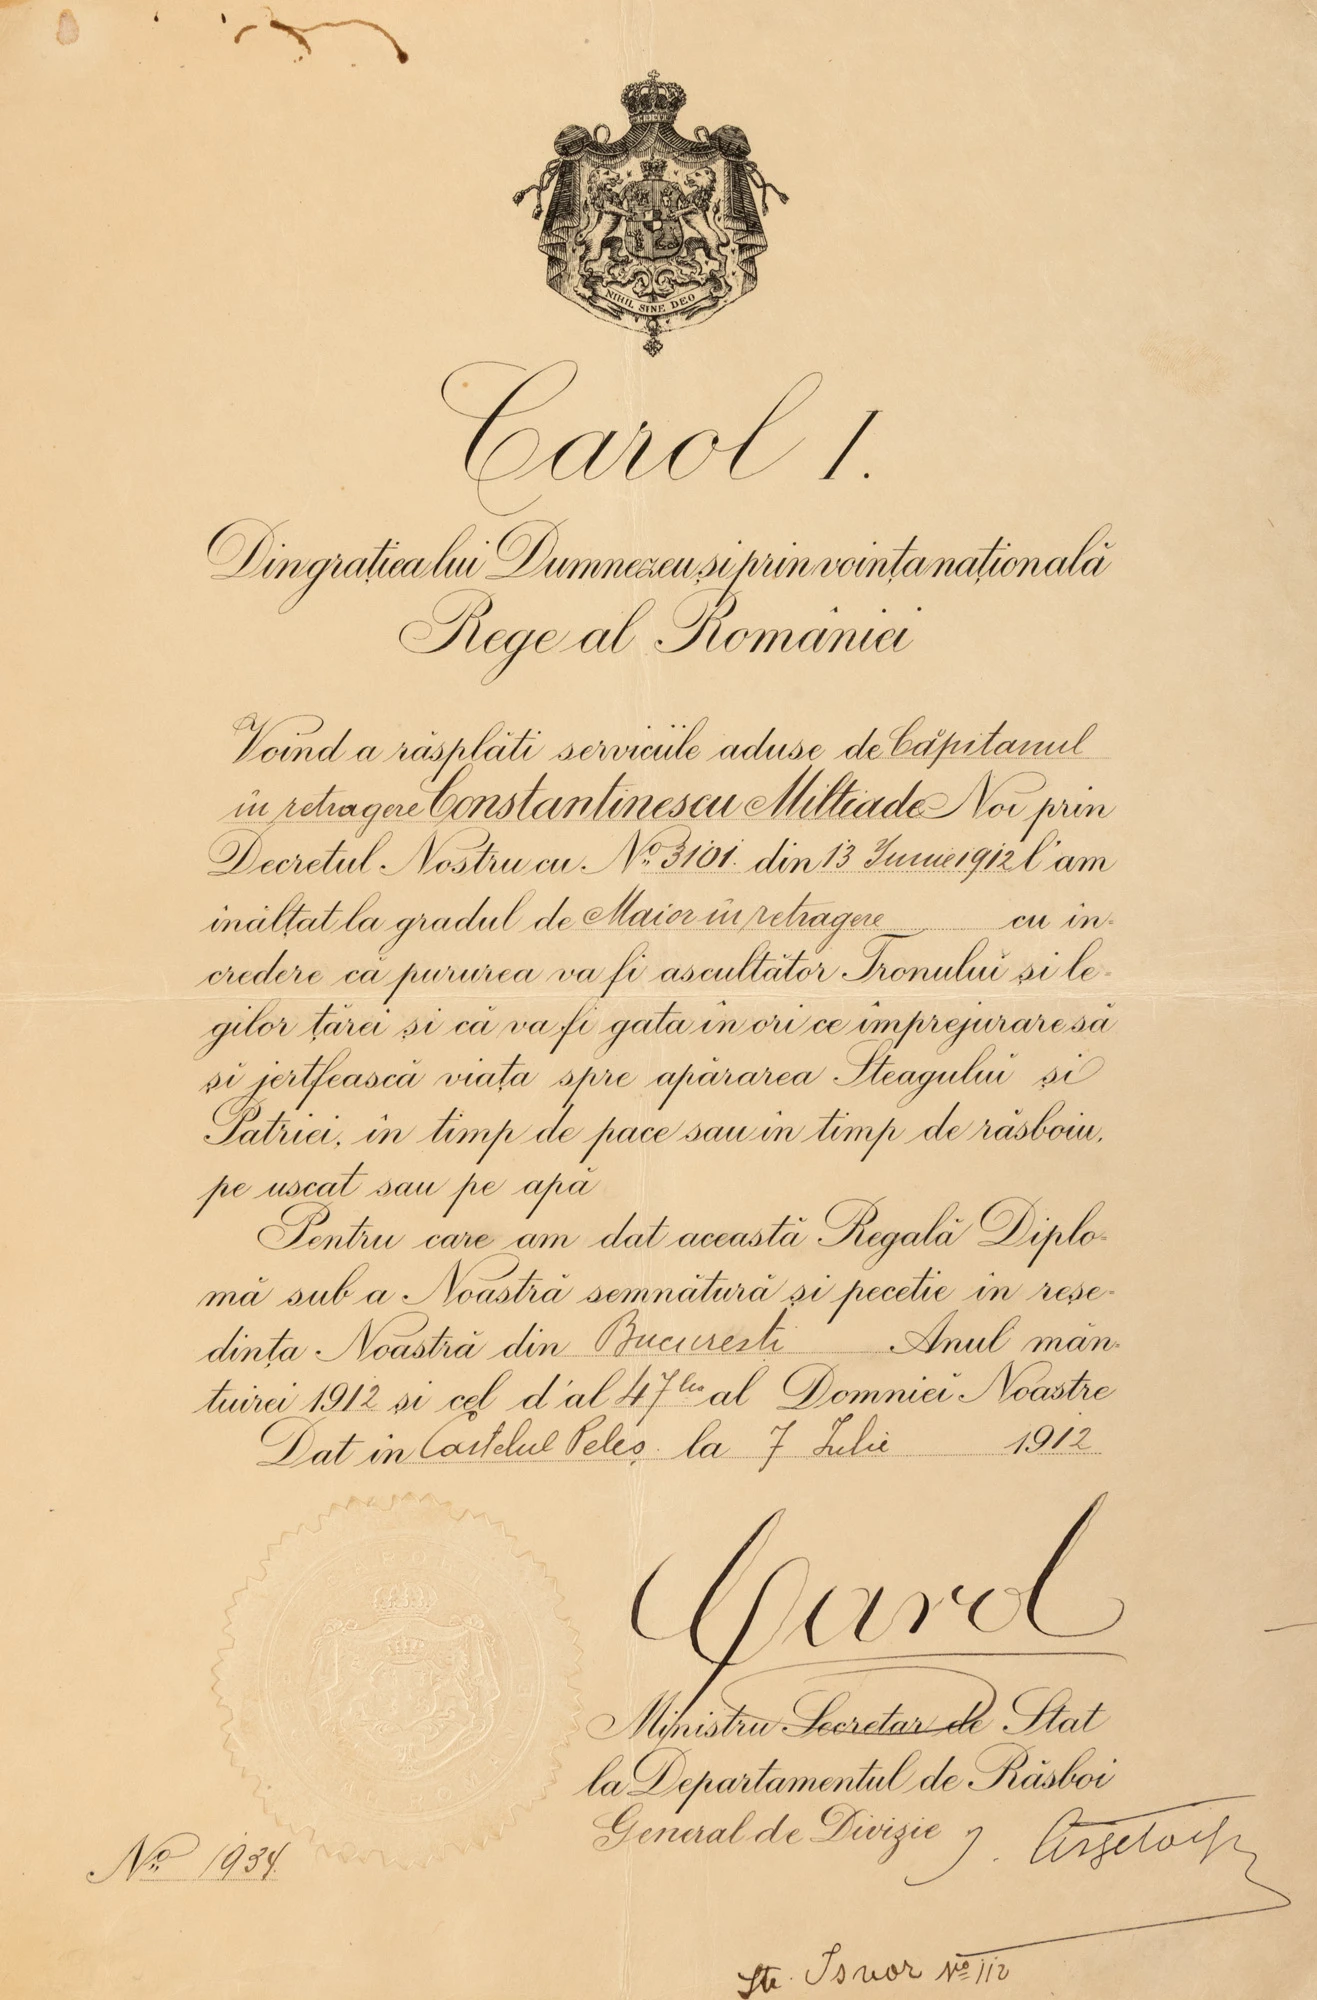 NIHIL SINE DEO
Carol I.
Din grațiea lui Dumnezeu și prin voința națională
Rege al României
Voind a răsplăti serviciile aduse de Căpitanul
în retragere Constantinescu Miltiade Noi prin
Decretul Nostru cu No. 3101. din 13 Iunie 1912 l'am
înălțat la gradul de Maior în retragere cu în-
credere că pururea va fi ascultător Tronului și le-
gilor țărei și că va fi gata în ori ce împrejurare să
și jertfească viața spre apărarea Steagului și
Patriei, în timp de pace sau în timp de răsboiu,
pe uscat sau pe apă
Pentru care am dat această Regală Diplo-
mă sub a Noastră semnătură și pecetie în reșe-
dința Noastră din București Anul mân-
tuirei 1912 și cel d'al 47lea al Domniei Noastre
Dat în Castelul Peleș. la 7 Iulie 1912
Carol
Ministru Secretar de Stat
la Departamentul de Răsboi
General de Divizie
No. 1934.
Isvor No 112